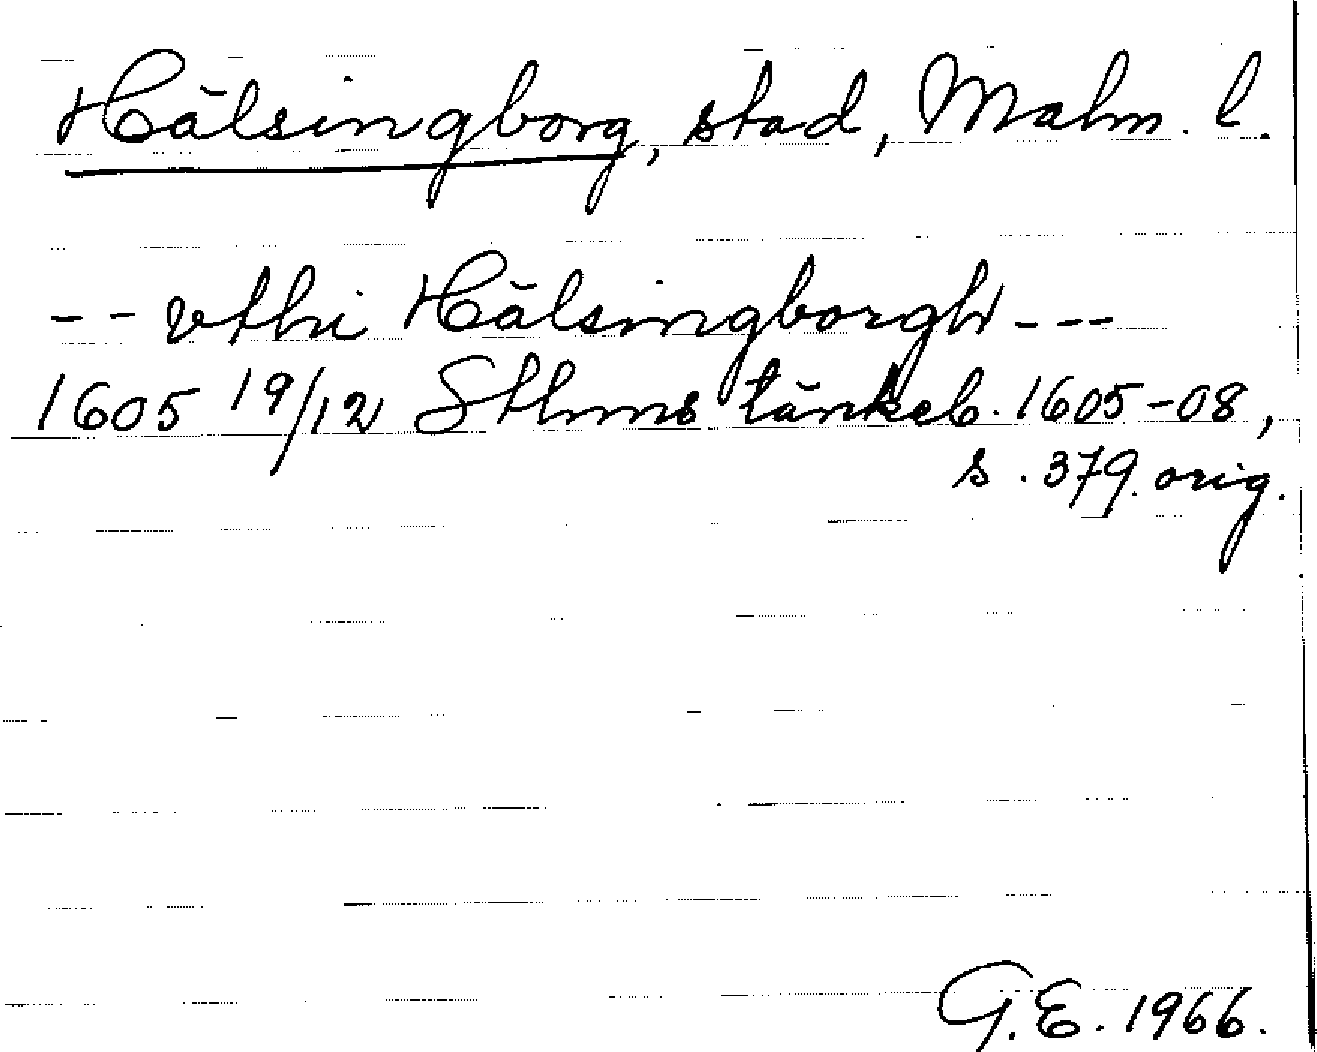 Hälsingborg, stad, Malm. l.
-- vthi Hälsingborgh ---
1605 19/12 Sthms tänkeb. 1605-08,
s. 379. orig.
G.E. 1966.